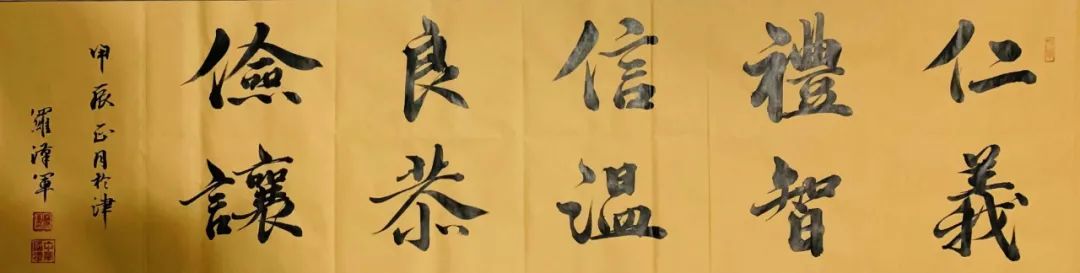 仁義
禮智
信温
良恭
儉讓
甲辰正月於津
羅漢軍